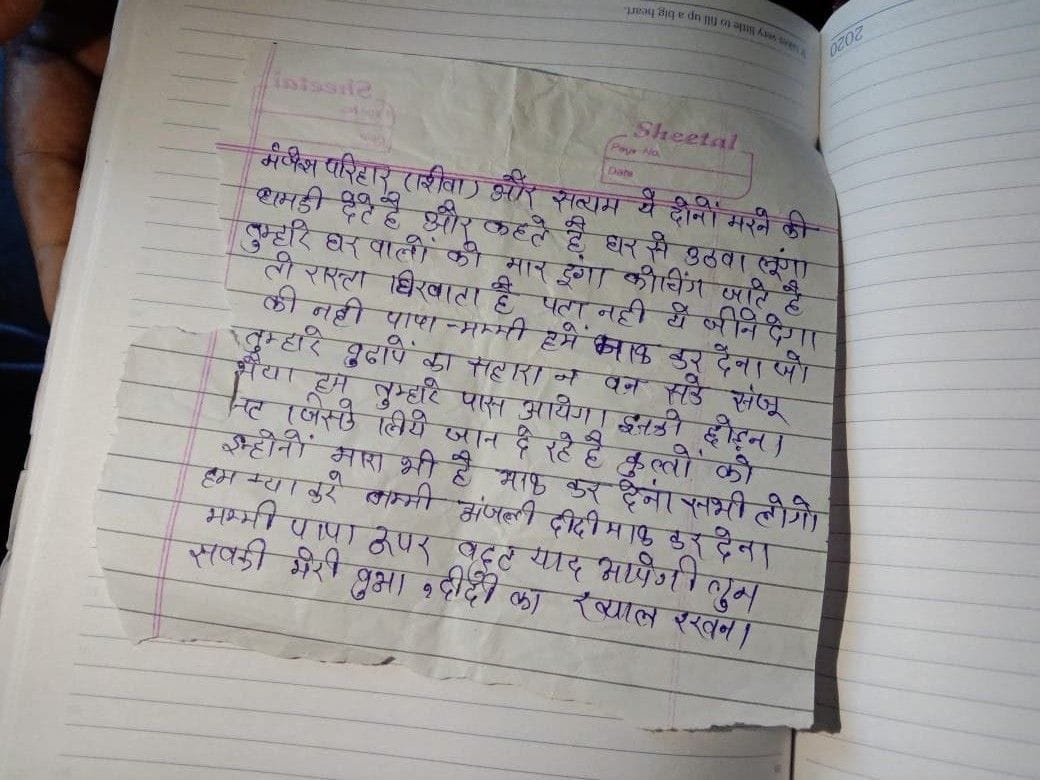 It takes very little to fill up a big heart.
2020
Sheetal
Page No.
Date
परिहार (शीवा) और सत्यम ये दोनों मरने की
धमकी देते है और कहते हैं घर से उठवा लूंगा
तुम्हारे घर वालों को मार दूंगा कोचिंग जाते है
तो रास्ता घिरवाता है पता नही ये जीने देगा
की नही पापा-मम्मी हमें माफ कर देना जो
तुम्हारे बुढापें का सहारा न बन सके संजू
भैया हम तुम्हारे पास आयेगे। इनको छोड़ना
जिसके लिये जान दे रहे है कुत्तों को
इन्होनों मारा भी है माफ कर देनां सभी लोगो
हम क्या करे मम्मी अंजली दीदी माफ कर देना
मम्मी पापा ऊपर बहुत याद आयेगी तुम
सबकी मेरी बुआ दीदी का ख्याल रखना